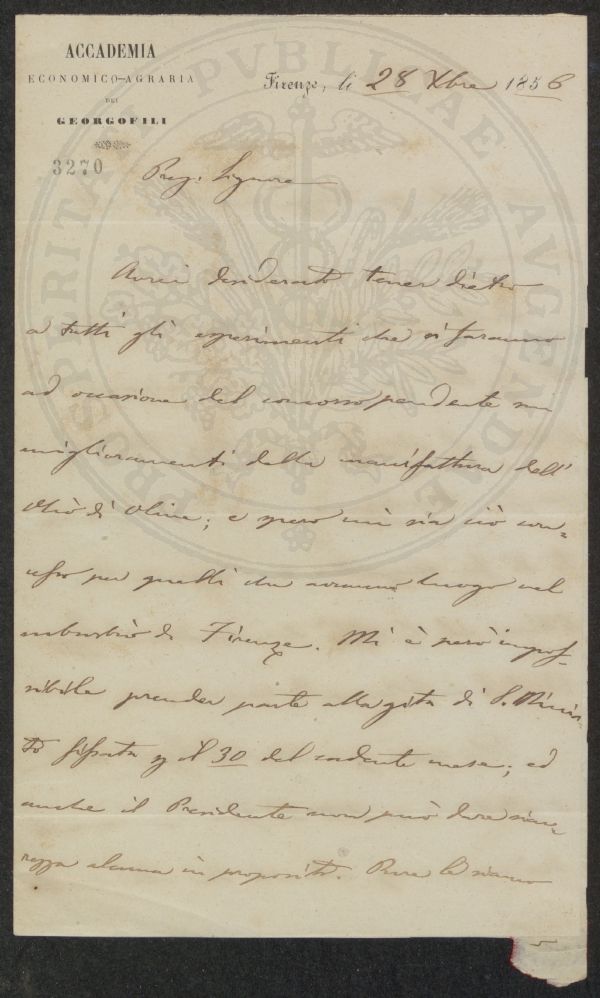 ACCADEMIA
ECONOMICO-AGRARIA
DEI
GEORGOFILI
3270
Firenze, li 28 Xbre 1856
Preg. Signore
Avrei desiderato tener dietro
a tutti gli esperimenti che si faranno
ad occasione del concorso pendente sui
miglioramenti della manifattura dell'
Olio di Oliva; e spero mi sia ciò con=
cesso per quelli che avranno luogo nel
suburbio di Firenze. Mi è però impos=
sibile prender parte alla gita di S. Minia=
to fissata p il 30 del cadente mese; ed
anche il Presidente non può dare sicu=
rezza alcuna in proposito. Pure le siamo
PROSPERITATI PVBLICAE AVGENDAE